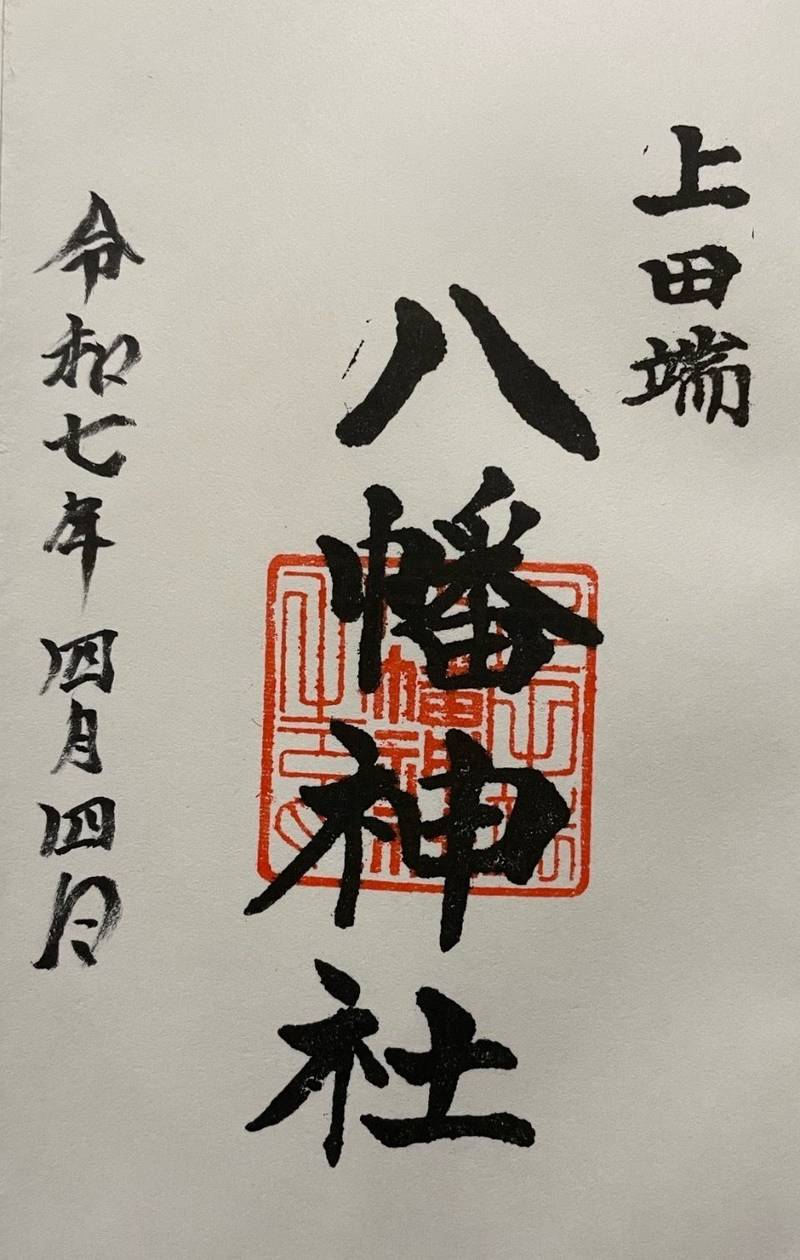 上田端
八幡神社
令和七年四月四日